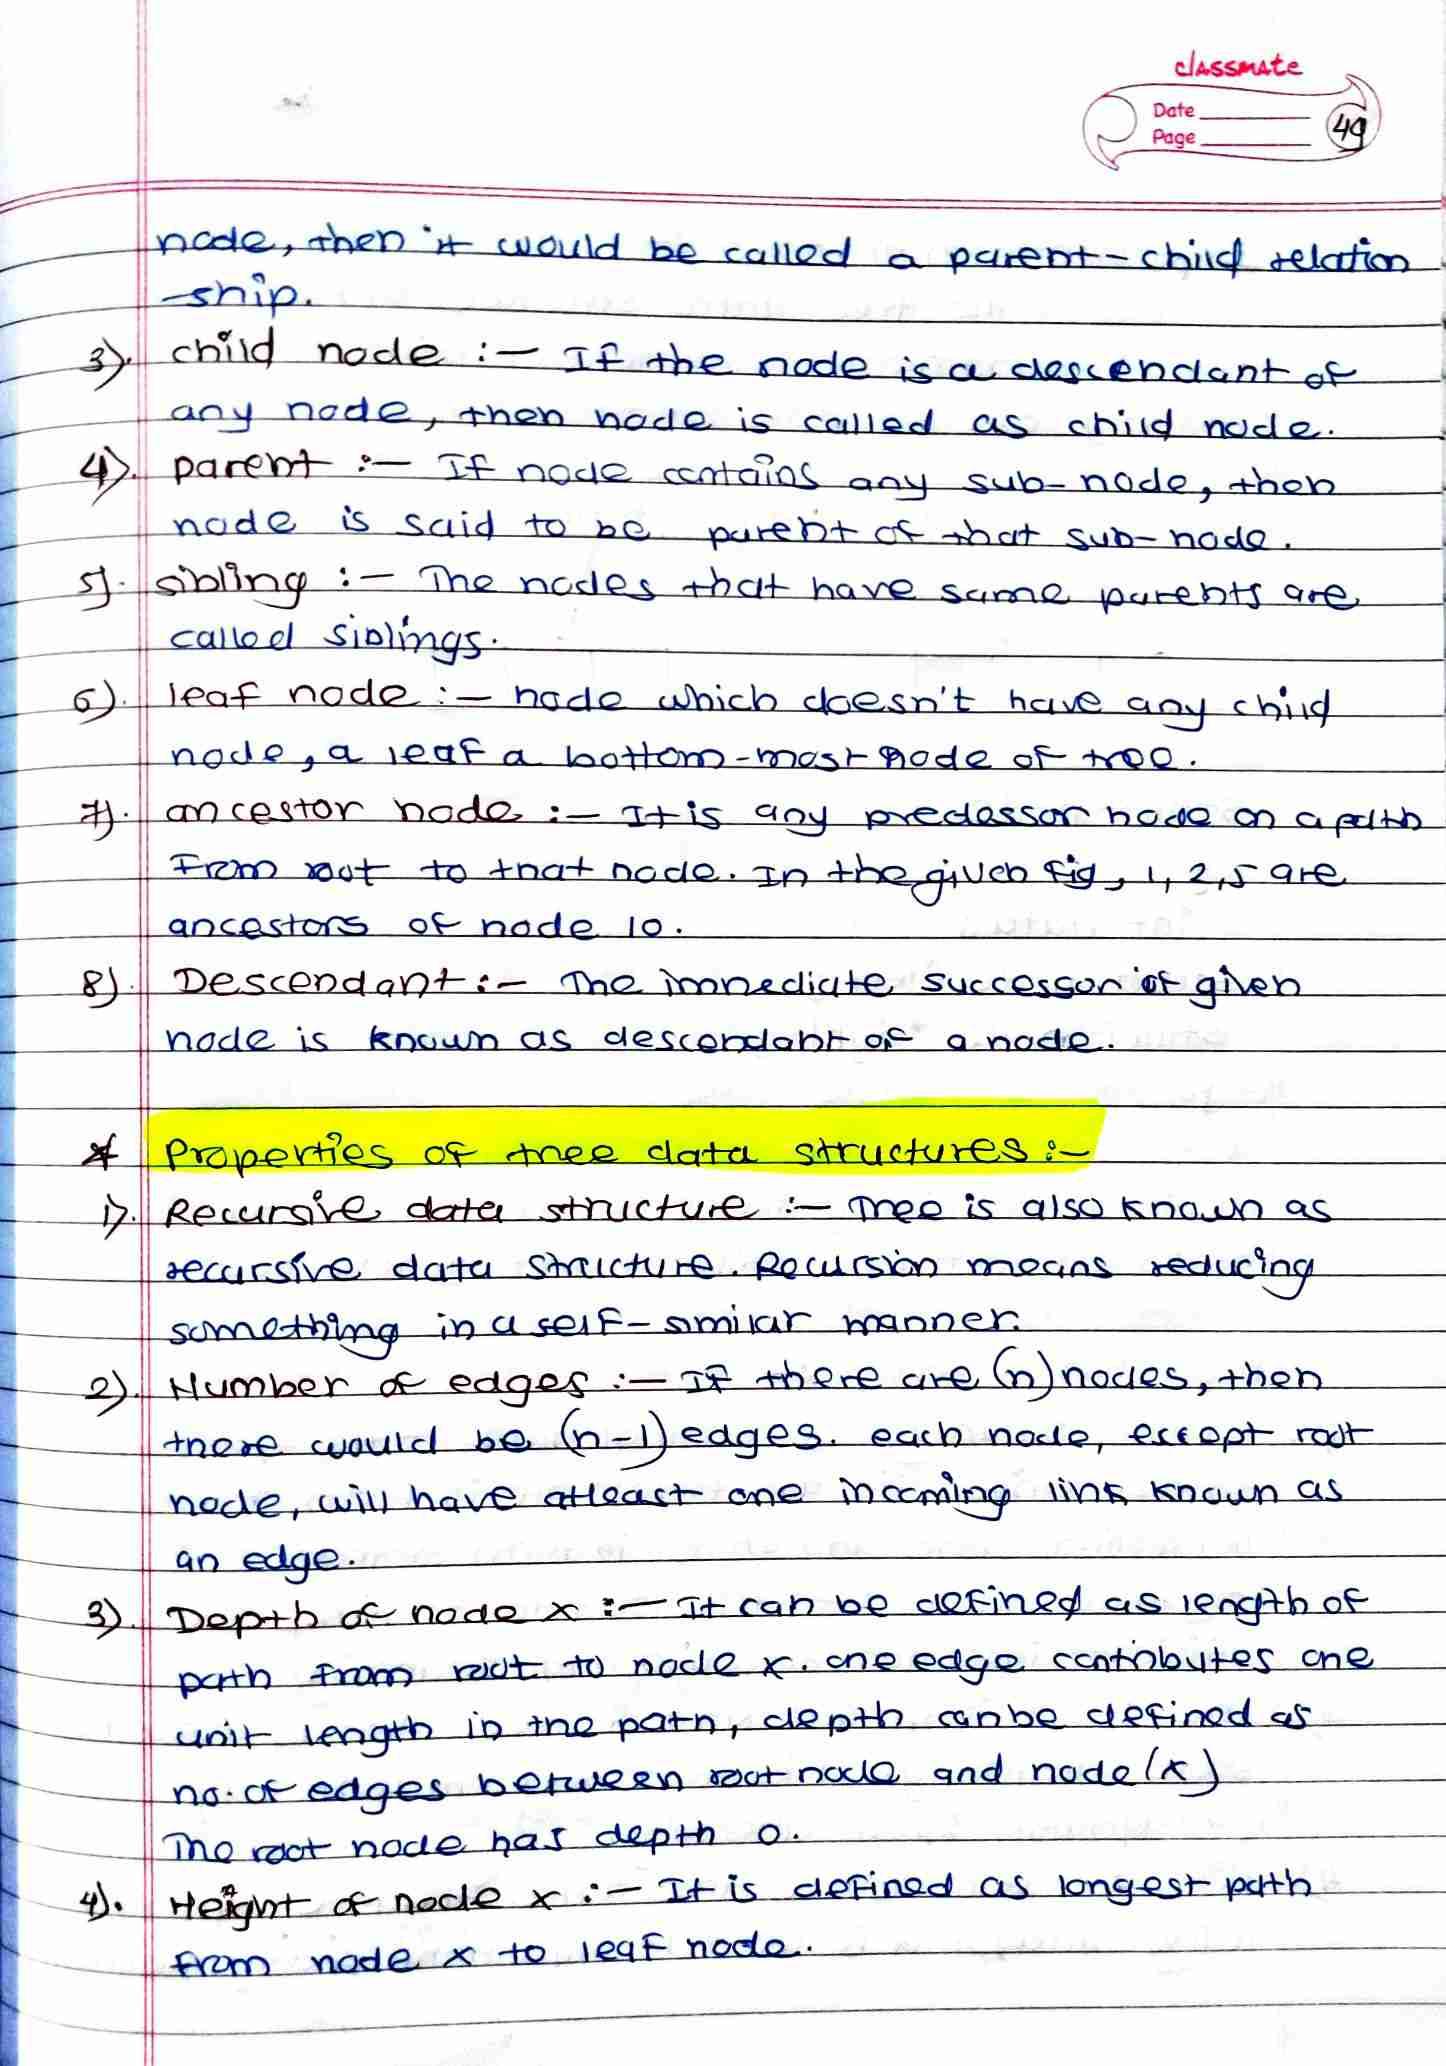 classmate
Date
Page
49
node, then it would be called a parent-child relation
-ship.
3). child node :- If the node is a descendant of
any node, then node is called as child node.
4). parent :- If node contains any sub-node, then
node is said to be parent of that sub-node.
5). sibling :- The nodes that have same parents are
called siblings.
6). leaf node :- node which doesn't have any child
node, a leaf a bottom-most node of tree.
7). ancestor node :- It is any predessor node on a path
from root to that node. In the given fig, 1, 2, 5 are
ancestors of node 10.
8). Descendant :- The immediate successor of given
node is known as descendant of a node.
* Properties of tree data structures :-
1). Recursive data structure :- Tree is also known as
recursive data structure. Recursion means reducing
something in a self-similar manner.
2). Number of edges :- If there are (n) nodes, then
there would be (n-1) edges. each node, except root
node, will have atleast one incoming link known as
an edge.
3). Depth of node x :- It can be defined as length of
path from root to node x. one edge contributes one
unit length in the path, depth can be defined as
no. of edges between root node and node (x)
The root node has depth 0.
4). Height of node x :- It is defined as longest path
from node x to leaf node.